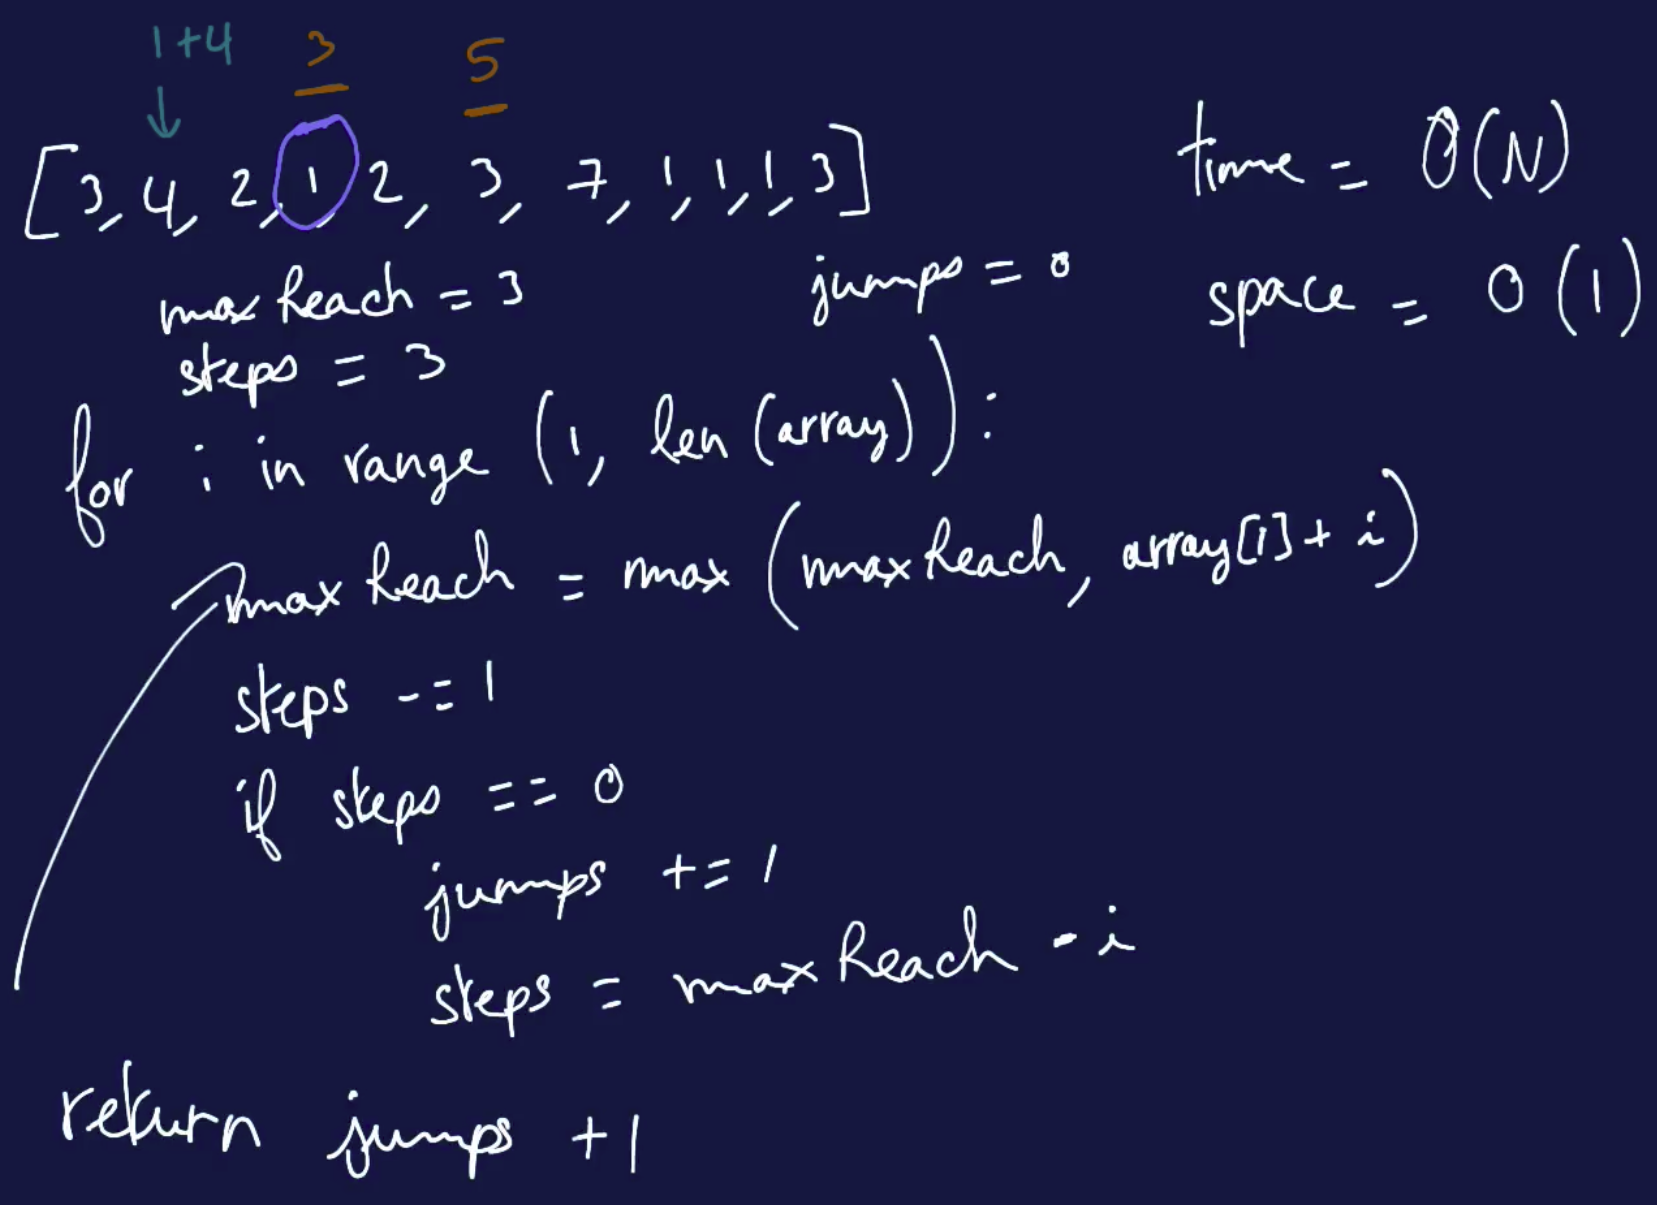 1+4 3 5
[3, 4, 2, 1, 2, 3, 7, 1, 1, 1, 3]
time = O(N)
maxReach = 3
jumps = 0
space = O(1)
steps = 3
for i in range (1, len(array)):
maxReach = max(maxReach, array[i] + i)
steps -= 1
if steps == 0
jumps += 1
steps = maxReach - i
return jumps + 1